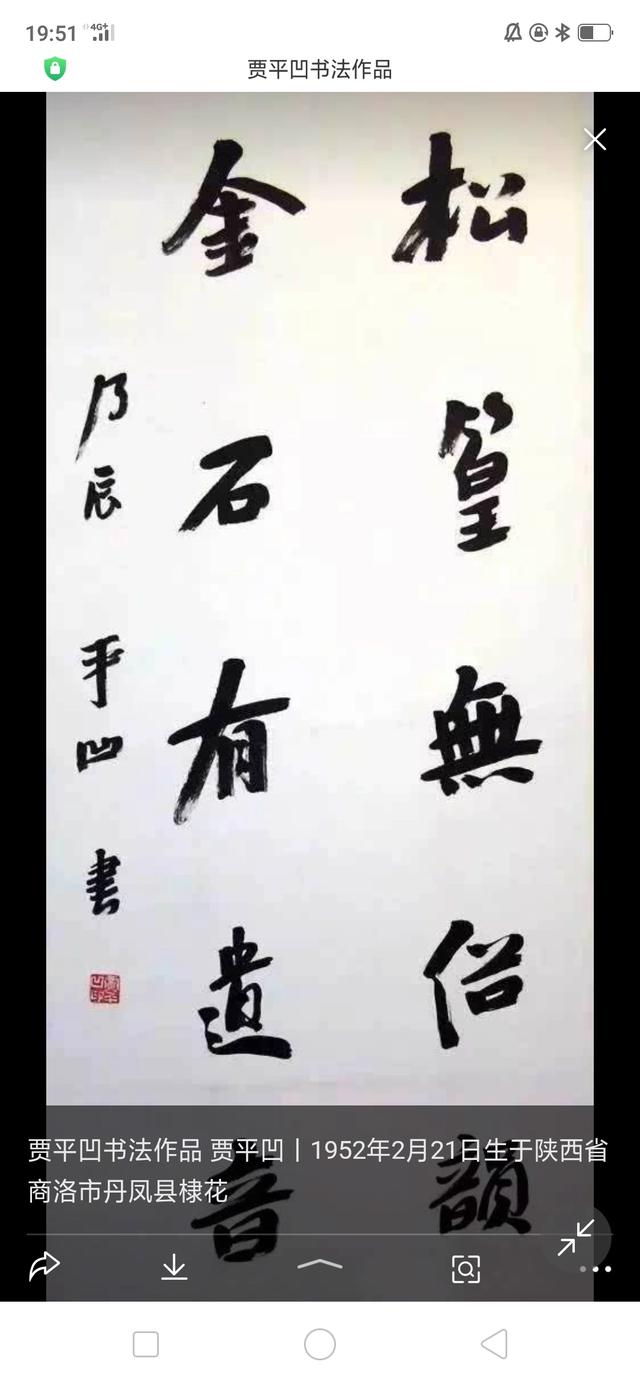 19:51
4G+
贾平凹书法作品
松篁無俗韻
金石有遺音
乃辰 平凹 書
贾平凹书法作品 贾平凹丨1952年2月21日生于陕西省
商洛市丹凤县棣花